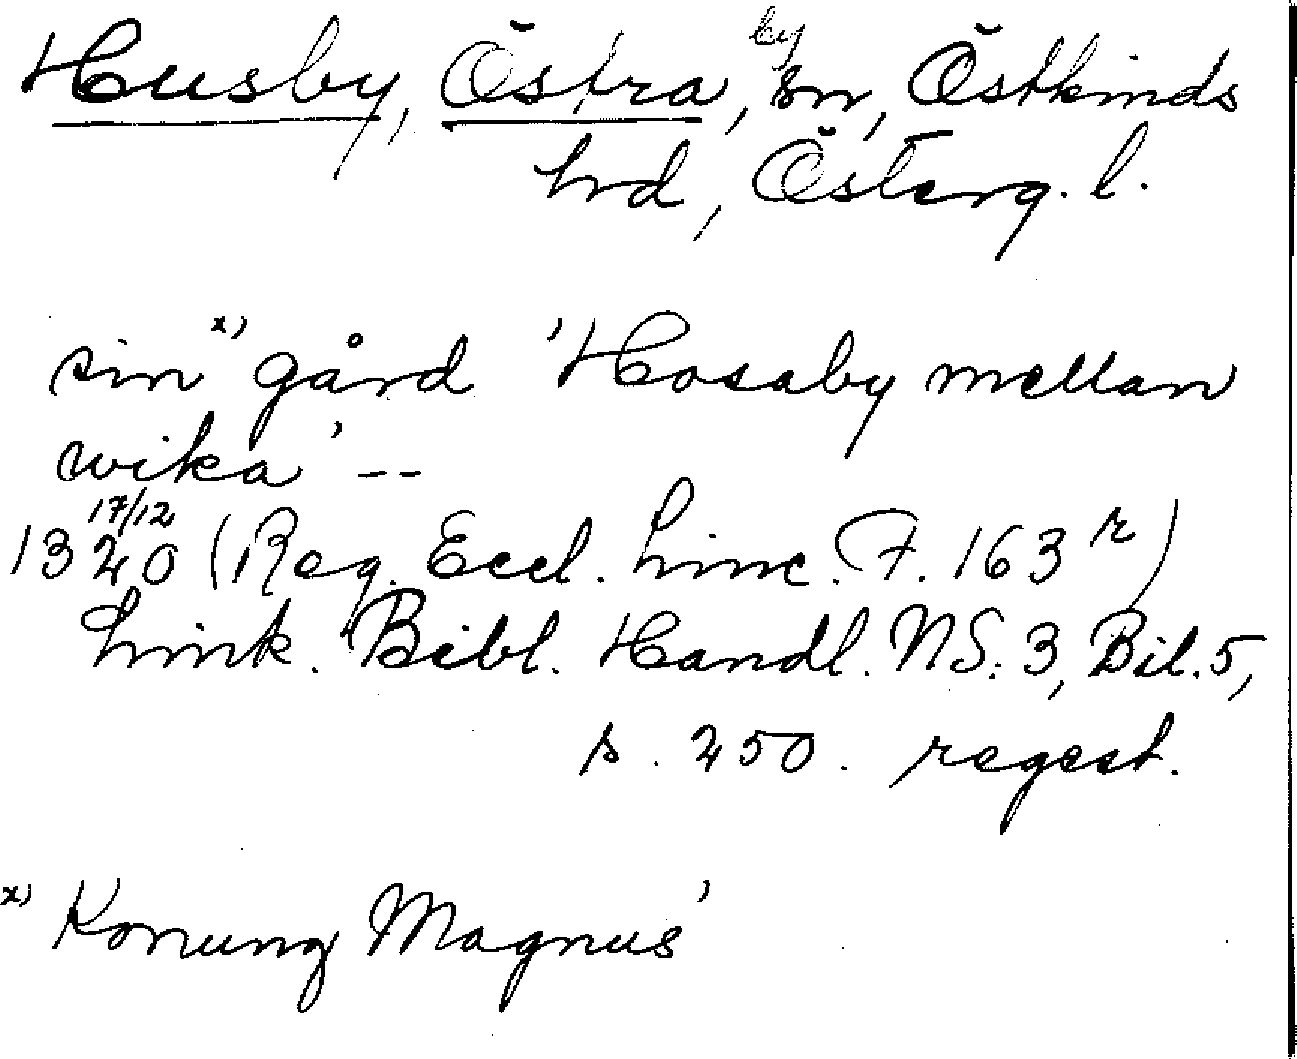 Husby, Östra, by, sn, Östkinds
hrd, Österg. l.
sin x) gård 'Hosaby mellan
wika' --
1340 17/12 (Reg. Eccl. Linc. F. 163 r)
Link. Bibl. Handl. NS. 3, Bil. 5,
s. 250. regest.
x) Konung Magnus'